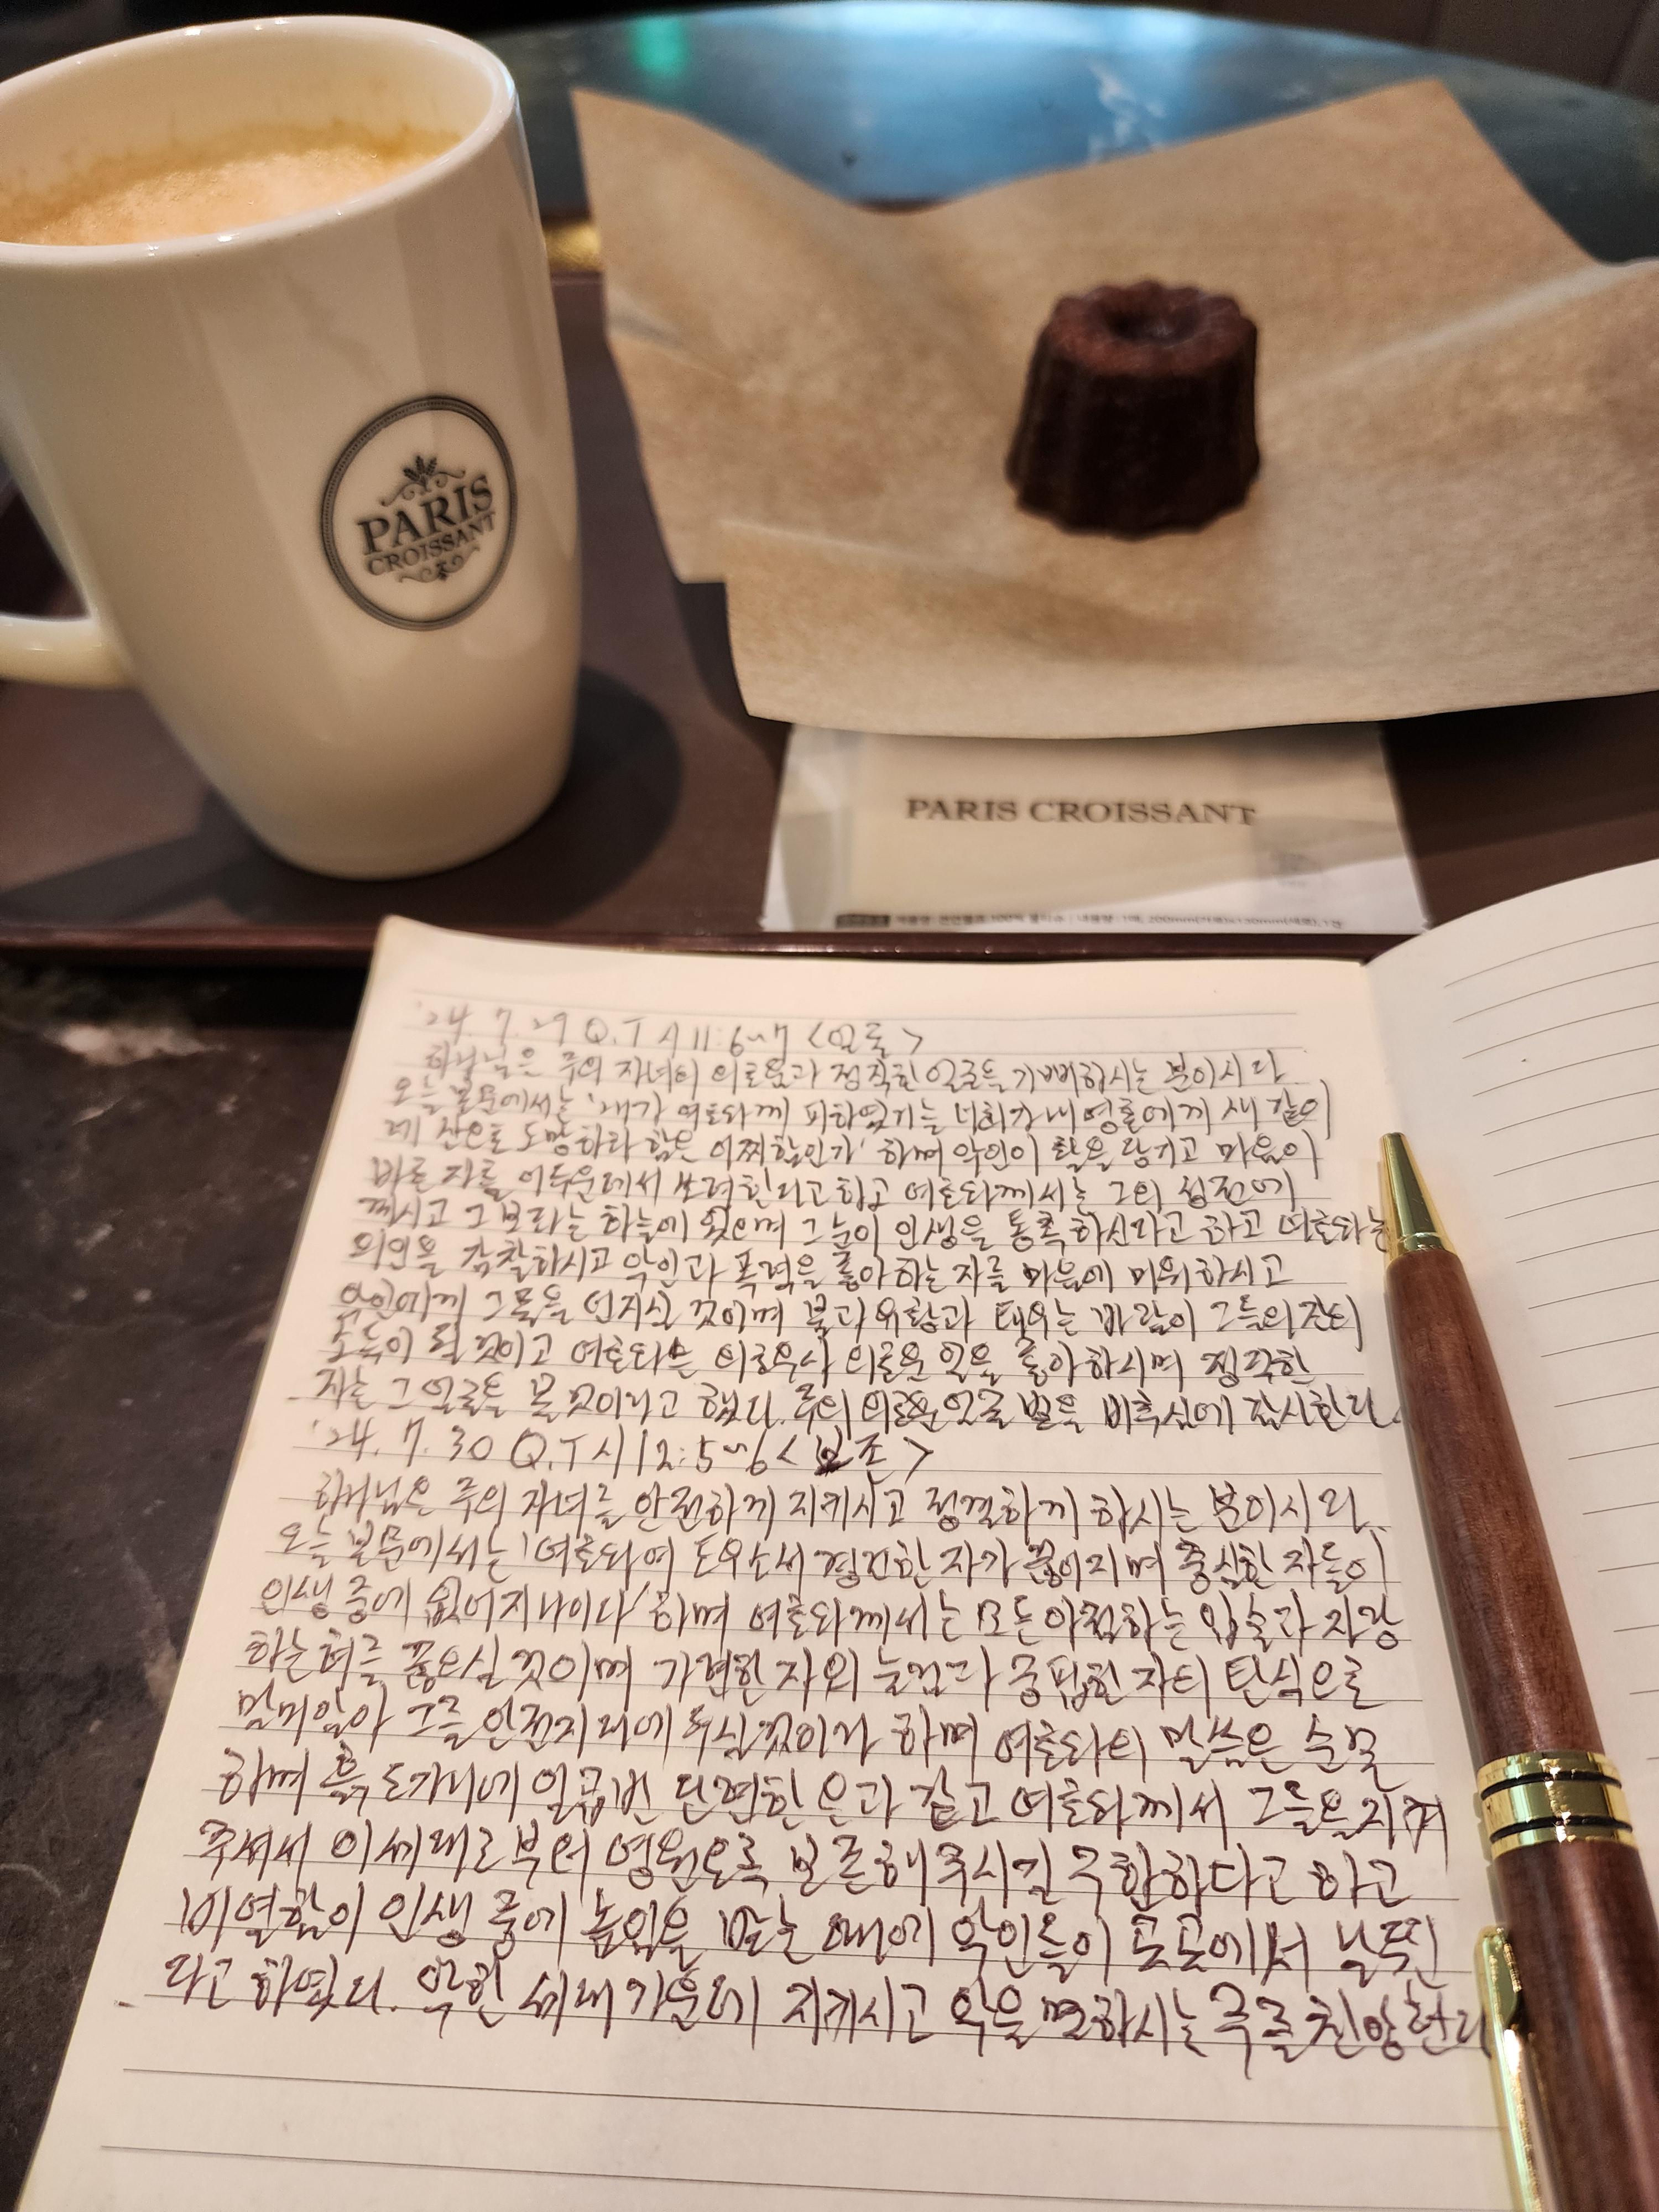 PARIS
CROISSANT
PARIS CROISSANT
'24. 7. 29 Q.T 시 11:6~7 <얼굴>
하나님은 주의 자녀의 의로움과 정직한 얼굴을 기뻐하시는 분이시다.
오늘 본문에서는 '내가 여호와께 피하였거늘 너희가 내 영혼에게 새 같이
네 산으로 도망하라 함은 어찌함인가' 하며 악인이 활을 당기고 마음이
바른 자를 어두운데서 쏘려한다고 하고 여호와께서는 그의 성전에
께시고 그 보좌는 하늘에 있으며 그 눈이 인생을 통촉하신다고 하고 여호와는
의인을 감찰하시고 악인과 폭력을 좋아하는 자를 마음에 미워하시고
악인에게 그물을 던지실 것이며 불과 유황과 태우는 바람이 그들의 잔의
소득이 될 것이고 여호와는 의로우사 의로운 일을 좋아하시며 정직한
자는 그 얼굴을 볼 것이라고 했다. 주의 의로운 얼굴 빛을 비추심에 감사한다.
'24. 7. 30 Q.T 시 12:5~6 <보존>
하나님은 주의 자녀를 안전하게 지키시고 정결하게 하시는 분이시다.
오늘 본문에서는 '여호와여 도우소서 경건한 자가 끊어지며 충실한 자들이
인생 중에 없어지나이다' 하며 여호와께서는 모든 아첨하는 입술과 자랑
하는 혀를 끊으실 것이며 가련한 자의 눌림과 궁핍한 자의 탄식으로
말미암아 그를 안전지대에 두실 것이라 하며 여호와의 말씀은 순결
하며 흙 도가니에 일곱번 단련한 은과 같고 여호와께서 그들을 지켜
주셔서 이 세대로부터 영원토록 보존해 주시길 구한다고 하고
비열함이 인생 중에 높임을 받는 때에 악인들이 곳곳에서 날뛴
다고 하였다. 악한 세대 가운데 지키시고 악을 멸하시는 주를 찬양한다